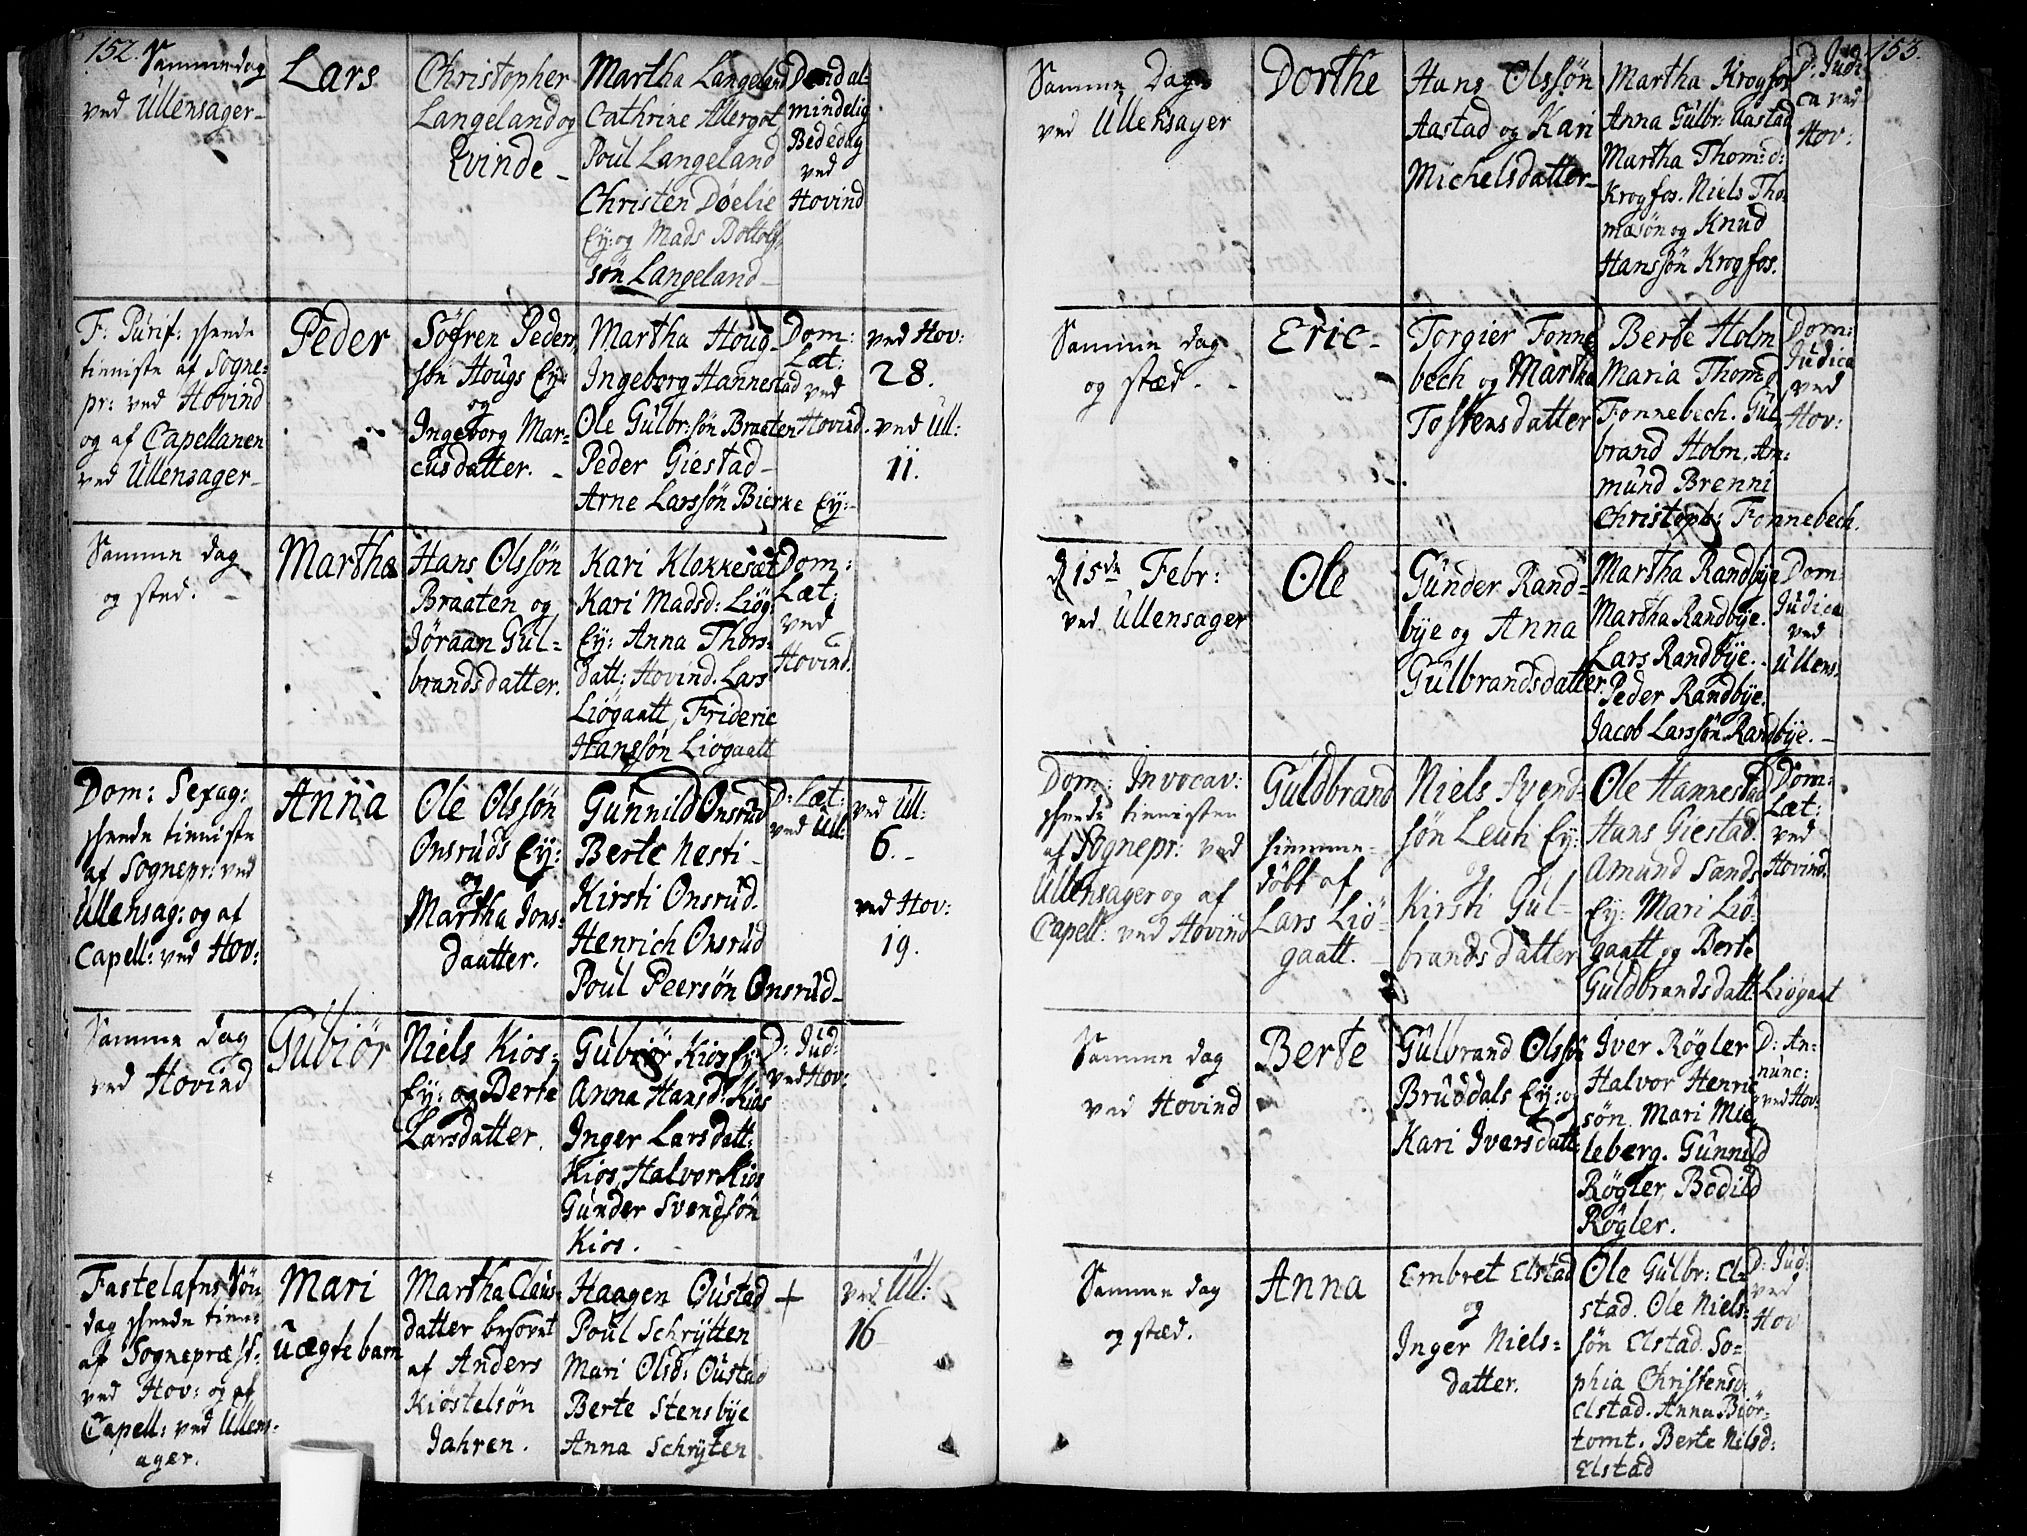 152.
Samme dag
ved Ullensager
Lars
Christopher
Langeland og
Qvinde
Martha Langeland
Cathrine Allergot
Poul Langeland
Christen Døelie
Ey: og Mads Bottolf
søn Langeland
Dend al-
mindelig
Bededag
ved
Hovind
F: Purif: skeede
tieniste af Sogne-
pr: ved Hovind
og af Capellanen
ved Ullensager
Peder
Søfren Peders
søn Hougs Ey:
og
Ingeborg Mar-
cusdatter.
Martha Houg
Ingeborg Hannestad
Ole Gulbr: søn Braaten
Peder Giestad
Arne Larssøn Bierke Ey:
Dom:
Læt:
ved
Hovind.
ved Hov:
28.
ved Ull:
11.
Samme dag
og sted.
Martha
Hans Olssøn
Braaten og
Jøraan Gul-
brandsdatter.
Kari Klokkesæt
Kari Madsd: Liøg:
Ey: Anna Thors-
datt: Hovind. Lars
Liøgaatt, Frideric
Hanssøn Liøgaatt
Dom:
Læt:
ved
Hovind.
Dom: Sexag:
skeede tieniste
af Sognepr: ved
Ullensag: og af
Capell: ved Hov:
Anna
Ole Olssøn
Onsruds Ey:
og
Martha Jons-
daatter.
Gunnild Onsrud
Berte Nesti
Kirsti Onsrud.
Henrich Onsrud
Poul Peersøn Onsrud
D: Læt:
ved Ull:
ved Ull:
6.
ved Hov:
19.
Samme dag
ved Hovind
Gubiør
Niels Kios-
Ey: og Berte
Larsdatter.
Gubiør Kios Ey:
Anna Hansd: Kios
Inger Larsdatt:
Kios, Halvor Kios
Gunder Svendsøn
Kios.
D: Jud:
ved Hov:
Fastelafns Søn
dag skeede tien:
af Sognepræst:
ved Hov: og af
Capell: ved Ullens-
ager.
Mari
uægte barn
Martha Claus-
datter besovet
af Anders
Kiøstelsøn
Jahren.
Haagen Oustad
Poul Schrytten
Mari Olsd: Oustad
Berte Stensbye
Anna Schryten
+
ved Ull:
16
153.
Samme Dag
ved Ullensager
Dorthe
Hans Olssøn
Aastad og Kari
Michelsdatter
Martha Krogfos
Anna Gulbr: Aastad
Martha Thom: d:
Krogfos. Niels Tho-
masøn og Knud
Hanssøn Krogfos.
D: Judi-
ca ved
Hov:
Samme dag
og stæd.
Eric
Torgier Fonne
bech og Martha
Tostensdatter
Berte Holm
Maria Thomd
Fonnebech. Gul
brand Holm, Am-
mund Brenni
Christoph: Fonnebech.
Dom:
Judica
ved
Hov:
d 15de Febr:
ved Ullensager
Ole
Gunder Rand-
bye og Anna
Gulbrandsdatter.
Martha Randbye
Martha Randbye.
Lars Randbye.
Peder Randbye.
Jacob Larssøn Randbye.
Dom:
Judica
ved
Ullens.
Dom: Invocav:
skeede tienisten
af Sognepr: ved
Ullensager og af
Capell: ved Hovind
Guldbrand
hiemme-
døbt af
Lars Liø-
gaatt.
Niels Svend-
søn Leuti Ey:
og
Kirsti Gul-
brandsdatter
Ole Hannestad
Hans Giestad.
Amund Sands
Ey: Mari Liø-
gaatt og Berte
Guldbrandsdatt: Liøgaat
Dom:
Læt:
ved
Hovind.
Samme dag
ved Hovind
Berte
Gulbrand Olssøn
Bruddals Ey: og
Kari Iversdatt:
Iver Røgler
Halvor Henric
søn. Mari Mie-
leberg. Gunnild
Røgler, Bodild
Røgler.
D: An-
nunc:
ved Hov:
Samme dag
og stæd.
Anna
Embret Elstad
og
Inger Niels-
datter.
Ole Gulbr: El-
stad. Ole Niels-
søn Elstad. So-
phia Christensd:
Elstad. Anna Biør-
tomt. Berte Nilsd:
Elstad
D: Jud:
ved
Hov